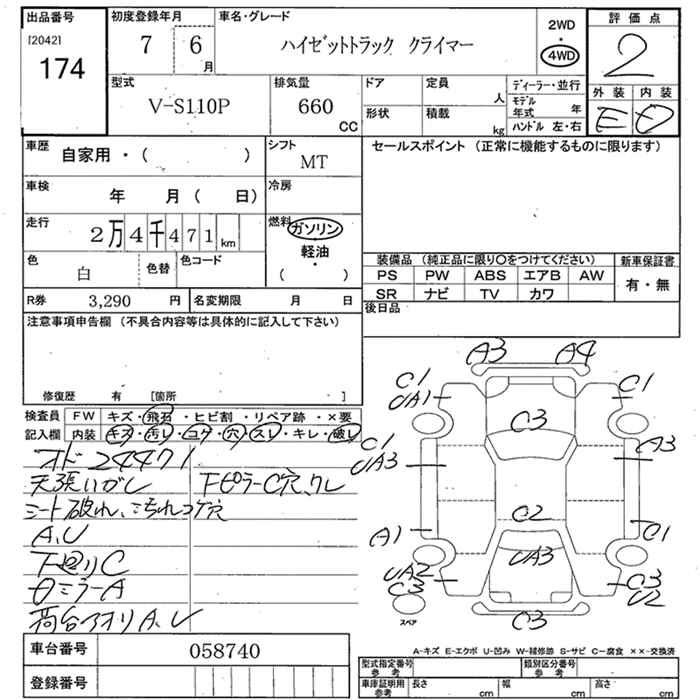 出品番号
[2042]
174
初度登録年月
7 6月
車名・グレード
ハイゼットトラック クライマー
2WD
・
4WD
評価点
2
型式
V-S110P
排気量
660 CC
ドア
定員 人
形状
積載 kg
ディーラー・並行
モデル年式 年
ハンドル 左・右
外装 内装
E D
車歴 自家用・( )
シフト MT
セールスポイント (正常に機能するものに限ります)
車検 年 月( 日)
冷房
走行 2万4千471km
燃料 ガソリン・
軽油・
( )
色 白 色替
色コード
装備品 (純正品に限り○をつけてください)
PS PW ABS エアB AW
SR ナビ TV カワ
新車保証書
有・無
R券 3,290 円
名変期限 月 日
後日品
注意事項申告欄 (不具合内容等は具体的に記入して下さい)
修復歴 有 [箇所 ・ ]
検査員 FW キズ・飛石・ヒビ割・リペア跡・×要
記入欄 内装 キズ・汚レ・コゲ・穴・スレ・キレ・破レ
オド24471
天張いがし 下ピラーC穴、クレ
シート破れ、こげ穴
A,U
下廻りC
ロミラーA
荷台アオリA、U
車台番号 058740
登録番号
A3 A4
C1 C1
UA1
C3
C1 A3
UA3
C2
A1 C1
UA3
UA2 C3
C3 U2
スペア
C3
A-キズ E-エクボ U-凹み W-補修跡 S-サビ C-腐食 ××-交換済
型式指定番号 参考
類別区分番号 参考
車庫証明用 参考 長さ cm 幅 cm 高さ cm